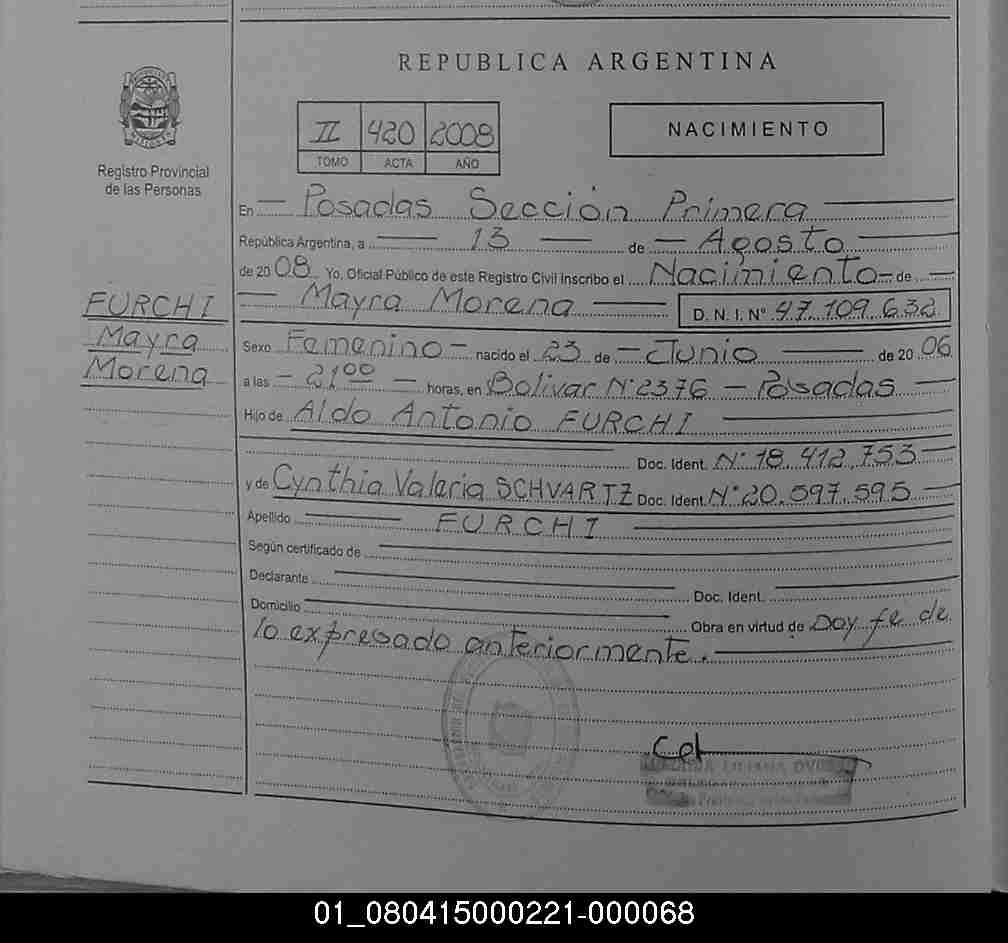 REPUBLICA ARGENTINA
Registro Provincial
de las Personas
II 420 2008
TOMO ACTA AÑO
NACIMIENTO
En Posadas Sección Primera
República Argentina, a 13 de Agosto
de 2008 Yo, Oficial Público de este Registro Civil Inscribo el Nacimiento de
Mayra Morena D. N. I. N° 47.109.632
FURCHI
Mayra
Morena
Sexo Femenino nacido el 23 de Junio de 2006
a las 21 00 horas, en Bolivar N° 2376 - Posadas
Hijo de Aldo Antonio FURCHI
Doc. Ident. N° 18.412.753
y de Cynthia Valeria SCHVARTZ Doc. Ident. N° 20.597.595
Apellido FURCHI
Según certificado de
Declarante Doc. Ident.
Domicilio Obra en virtud de Doy fe de
lo expresado anteriormente.
LILIANA
01_080415000221-000068